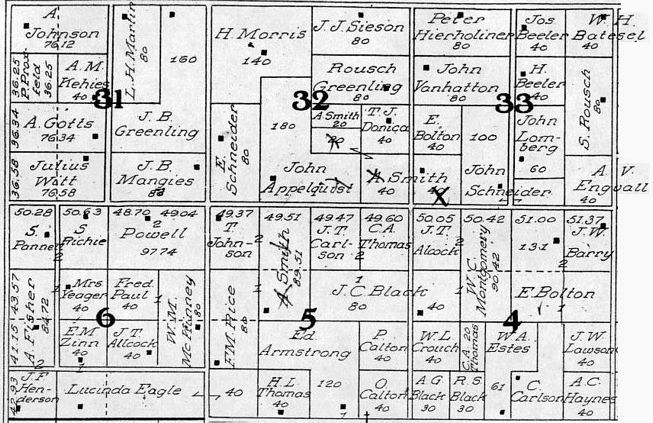 A.
Johnson
76.12
36.25
P. Pros-
feld
36.25
A.M.
Kehies
40
31
L.H. Marlin
80
160
96.34
A. Gotts
76.34
J.B.
Greenling
36.58
Julius
Watt
76.58
J.B.
Mangies
80
H Morris
140
J.J. Sieson
80
Rousch
Greenling
80
32
A. Smith
20
T.J.
Donica
40
180
E. Schneider
80
John
Appelquist
A Smith
40
Peter
Hierholiner
80
John
Vanhatton
80
Jos.
Beeler
40
W. H.
Batesel
H.
Beeler
40
33
S. Rousch
80
E.
Bolton
40
100
John
Lom-
berg
60
A. Smith
40
X
John
Schneider
A V
Engvall
40
50.28
50.63
48.70
49.04
S.
Panner
S
Richie
2
Powell
97.74
43.57
41.15
A. Fisher
84.72
Mrs
Yeager
40
Fred
Paul
40
1
W.M.
McKinney
80
6
E.M
Zinn
40
J.T
Allcock
40
2
42.93
J.F
Hen-
derson
Lucinda Eagle
49.37
49.51
49.47
49.60
T.
John-
son
2
A. Smith
89.51
J.T.
Carl-
son
2
C.A.
Thomas
1
F.M. Rice
80
1
J.C. Black
80
5
Ed
Armstrong
P.
Calton
40
40
H.L
Thomas
40
120
O
Calton
40
50.05
50.42
51.00
51.37
J.T.
Alcock
2
W.C.
Montgomery
90.42
131
J.W.
Barry
2
40
E. Bolton
4
W.L
Crouch
40
C.A. 20
Thomas
W.A.
Estes
J.W.
Lawson
40
A.G
Black
30
R.S
Black
30
61
C.
Carlson
A.C.
Haynes
40